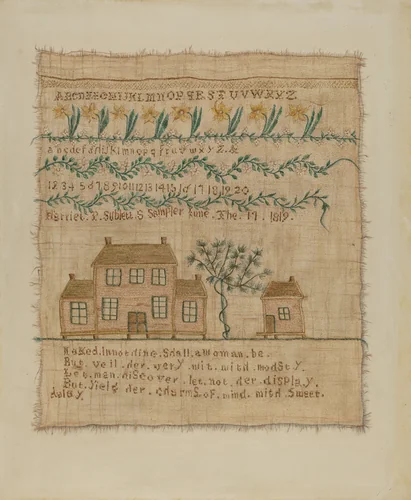 ABCDEFGHIJKLMNOPQRSTUVWXYZ
abcdefghijklmnopqrstuvwxyz.&
1234567891011121314151617181920
Harriet. P. Sublett. S Sampler June. The. 17. 1819.
Naked.In.not.dine.Shall.a.woman.be.
But. veil. der. very. wit. witd. modSty.
Let.man.diScover.let.not.der.diSplay.
But.Yield.der.cdarmS.of.mind.witd.Sweet.
delay